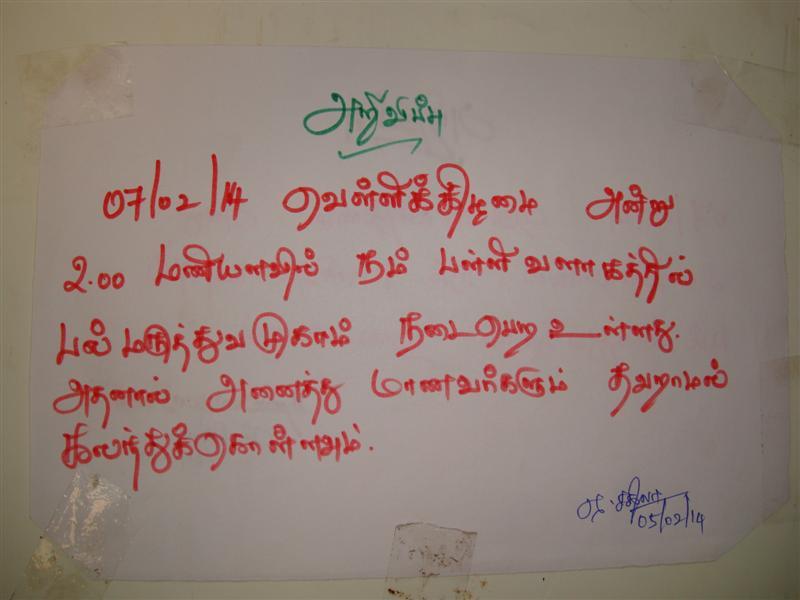 அறிவிப்பு
07/02/14 வெள்ளிக்கிழமை அன்று
2.00 மணியளவில் நம் பள்ளி வளாகத்தில்
பல் மருத்துவ முகாம் நடைபெற உள்ளது.
அதனால் அனைத்து மாணவர்களும் தவறாமல்
கலந்துக்கொள்ளவும்.
05/02/14